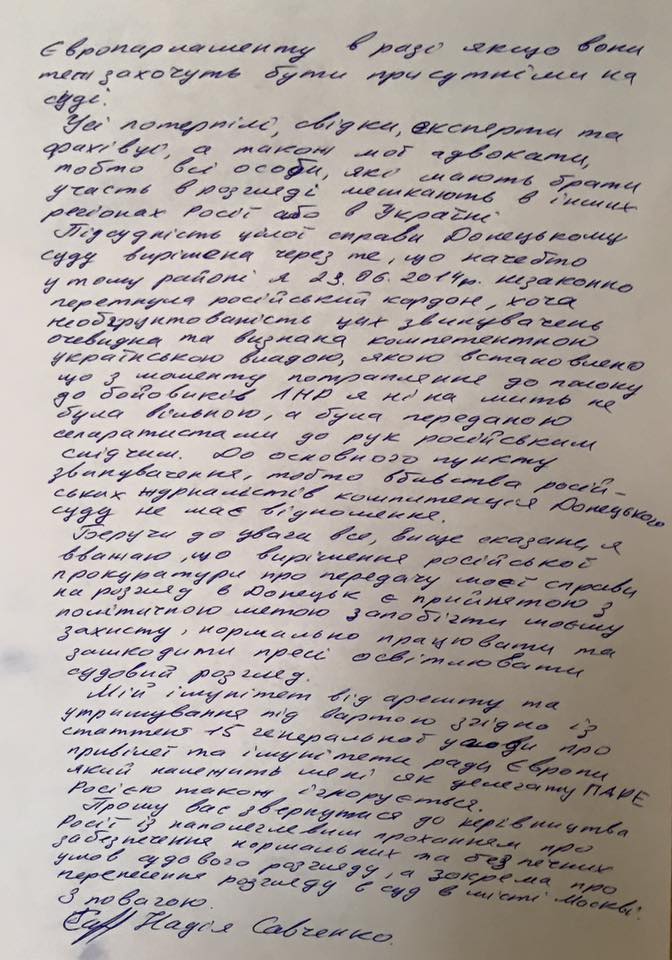 Європарламенту в разі якщо вони
теж захочуть бути присутніми на
суді.
Усі потерпілі, свідки, експерти та
фахівці, а також мої адвокати,
тобто всі особи, які мають брати
участь в розгляді мешкають в інших
регіонах Росії або в Україні
Підсудність цілої справи Донецькому
суду вирішена через те, що начебто
у тому районі я 23.06.2014р. незаконно
перетнула російський кордон, хоча
необґрунтованість цих звинувачень
очевидна та визнана компетентною
українською владою, якою встановлено
що з моменту потрапленне до полону
до бойовиків ЛНР я ні на мить не
була вільною, а була переданою
сепаратистами до рук російським
слідчим. До основного пункту
звинувачення, тобто вбивства росій-
ських журналістів компитенція Донецького
суду не має відношення.
Беручи до уваги все, вище сказане, я
вважаю, що вирішення російської
прокуратури про передачу моєї справи
на розгляд в Донецьк є прийнятою з
політичною метою запобігти моєму
захисту, нормально працювати та
зашкодити пресі освітлювати
судовий розгляд.
Мій імунітет від арешту та
утримування під вартою згідно із
статтет 15 генеральної умови про
привілеї та імунітети ради Європи
який належить мені як делегату ПАРЕ
Росією також ігнорується.
Прошу вас звернутися до керівництва
Росії із наполегливим проханням про
забезпечення нормальних та безпечних
умов судового розгляду, а зокрема про
перенесення розгляду в суд в місті Москві.
З повагою.
Надія Савченко.